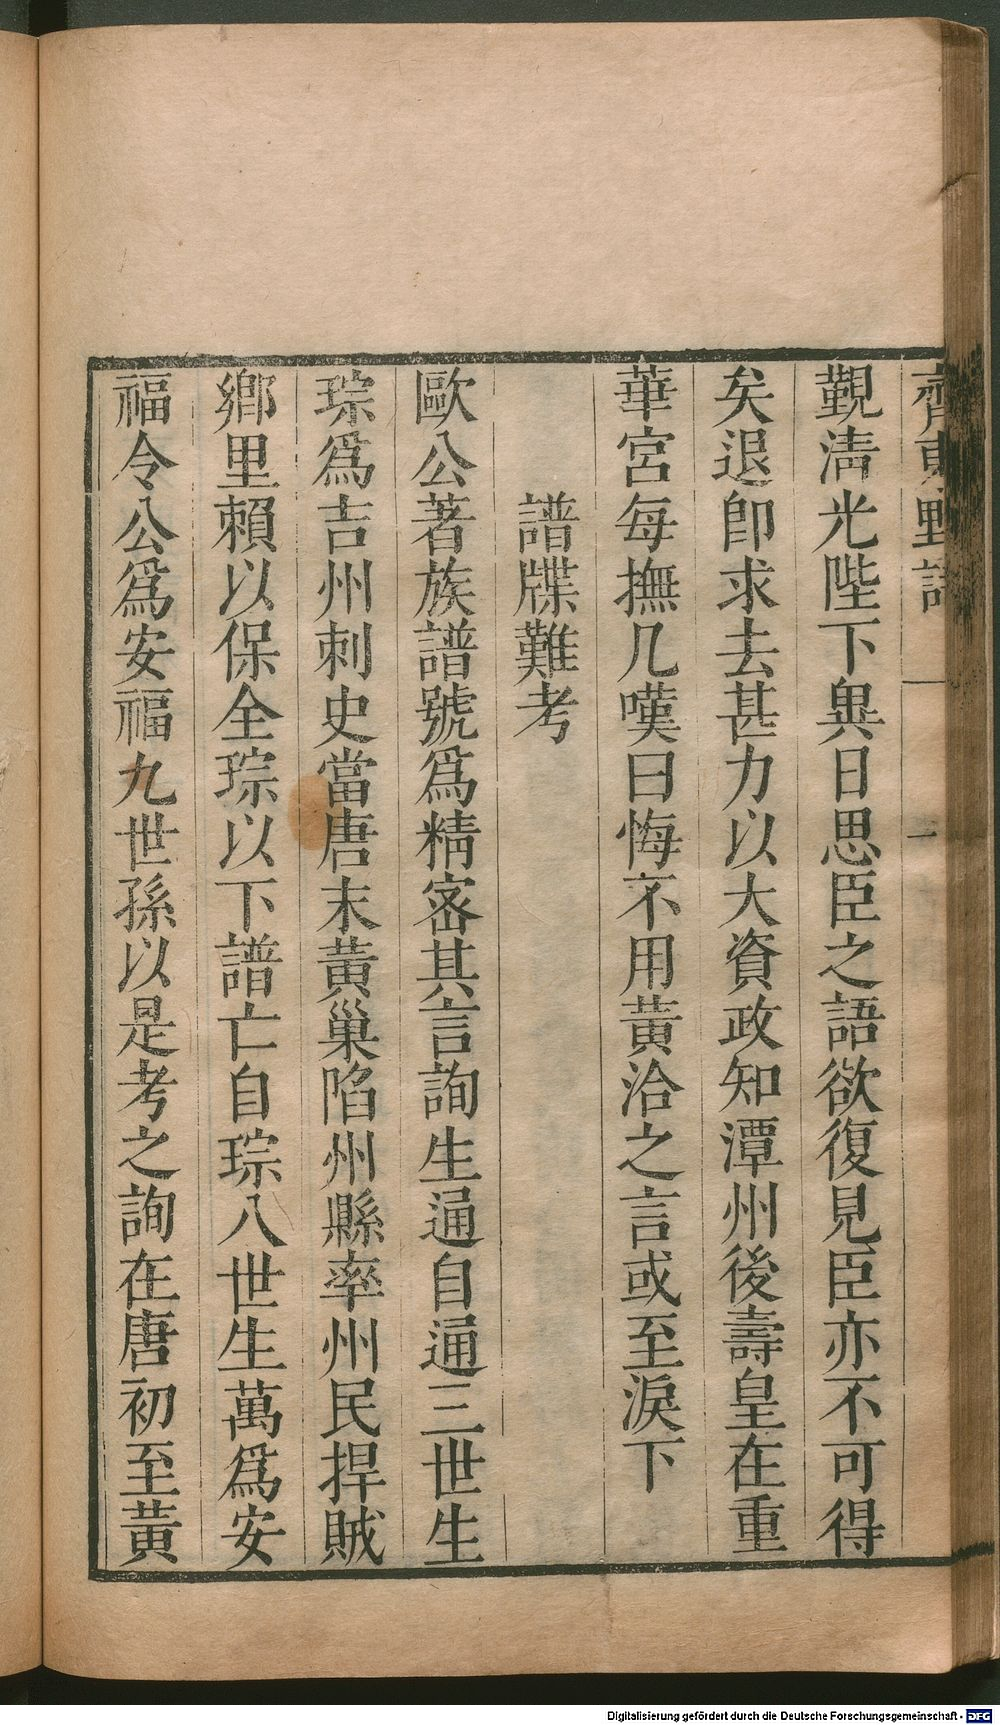 齊東野語 一
覲淸光陛下異日思臣之語欲復見臣亦不可得
矣退卽求去甚力以大資政知潭州後壽皇在重
華宮每撫几嘆曰悔不用黃洽之言或至淚下
譜牒難考
歐公著族譜號爲精密其言詢生通自通三世生
琮爲吉州刺史當唐末黃巢陷州縣率州民捍賊
鄉里賴以保全琮以下譜亡自琮八世生萬爲安
福令公爲安福九世孫以是考之詢在唐初至黃
Digitalisierung gefördert durch die Deutsche Forschungsgemeinschaft - DFG